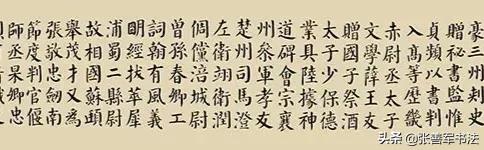 豪三州刺史
贈祕書監惟
貞頻以書判
入高等歷畿
赤尉丞太子
文學薛王友
贈國子祭酒
太子少保德
業具陸據神
道碑會宗襄
州參軍孝友
楚州司馬澄
左衛翊衛潤
倜儻涪城尉
曾孫春卿工
詞翰有風義
明經拔萃犀
浦蜀二縣尉
故相國蘇頲
舉茂才又為
張敬忠劍南
節度判官偃
師丞杲卿忠
头条 @张善军书法